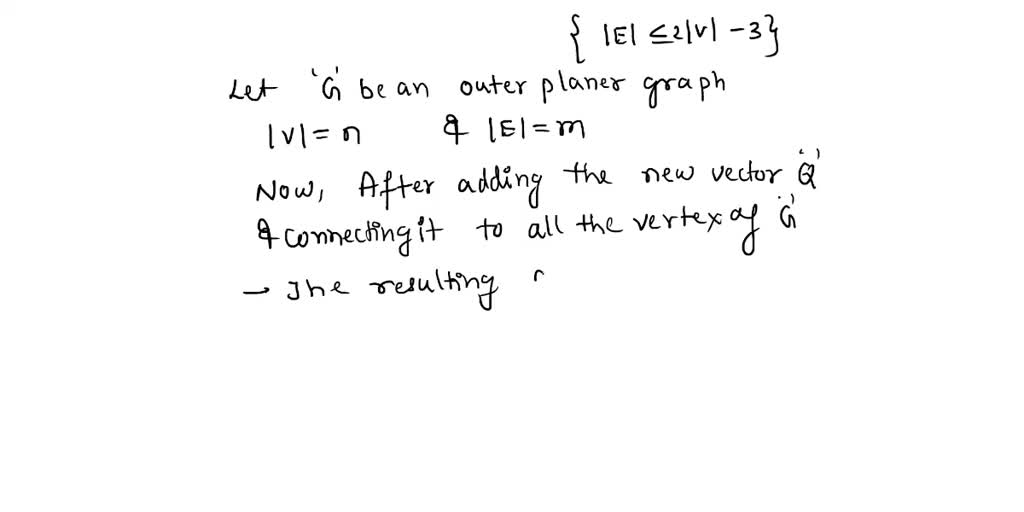 { |E| ≤ 2|V| - 3 }
Let 'G' be an outer planer graph
|V| = n & |E| = m
Now, After adding the new vector 'Q'
& connecting it to all the vertex of 'G'
→ The resulting